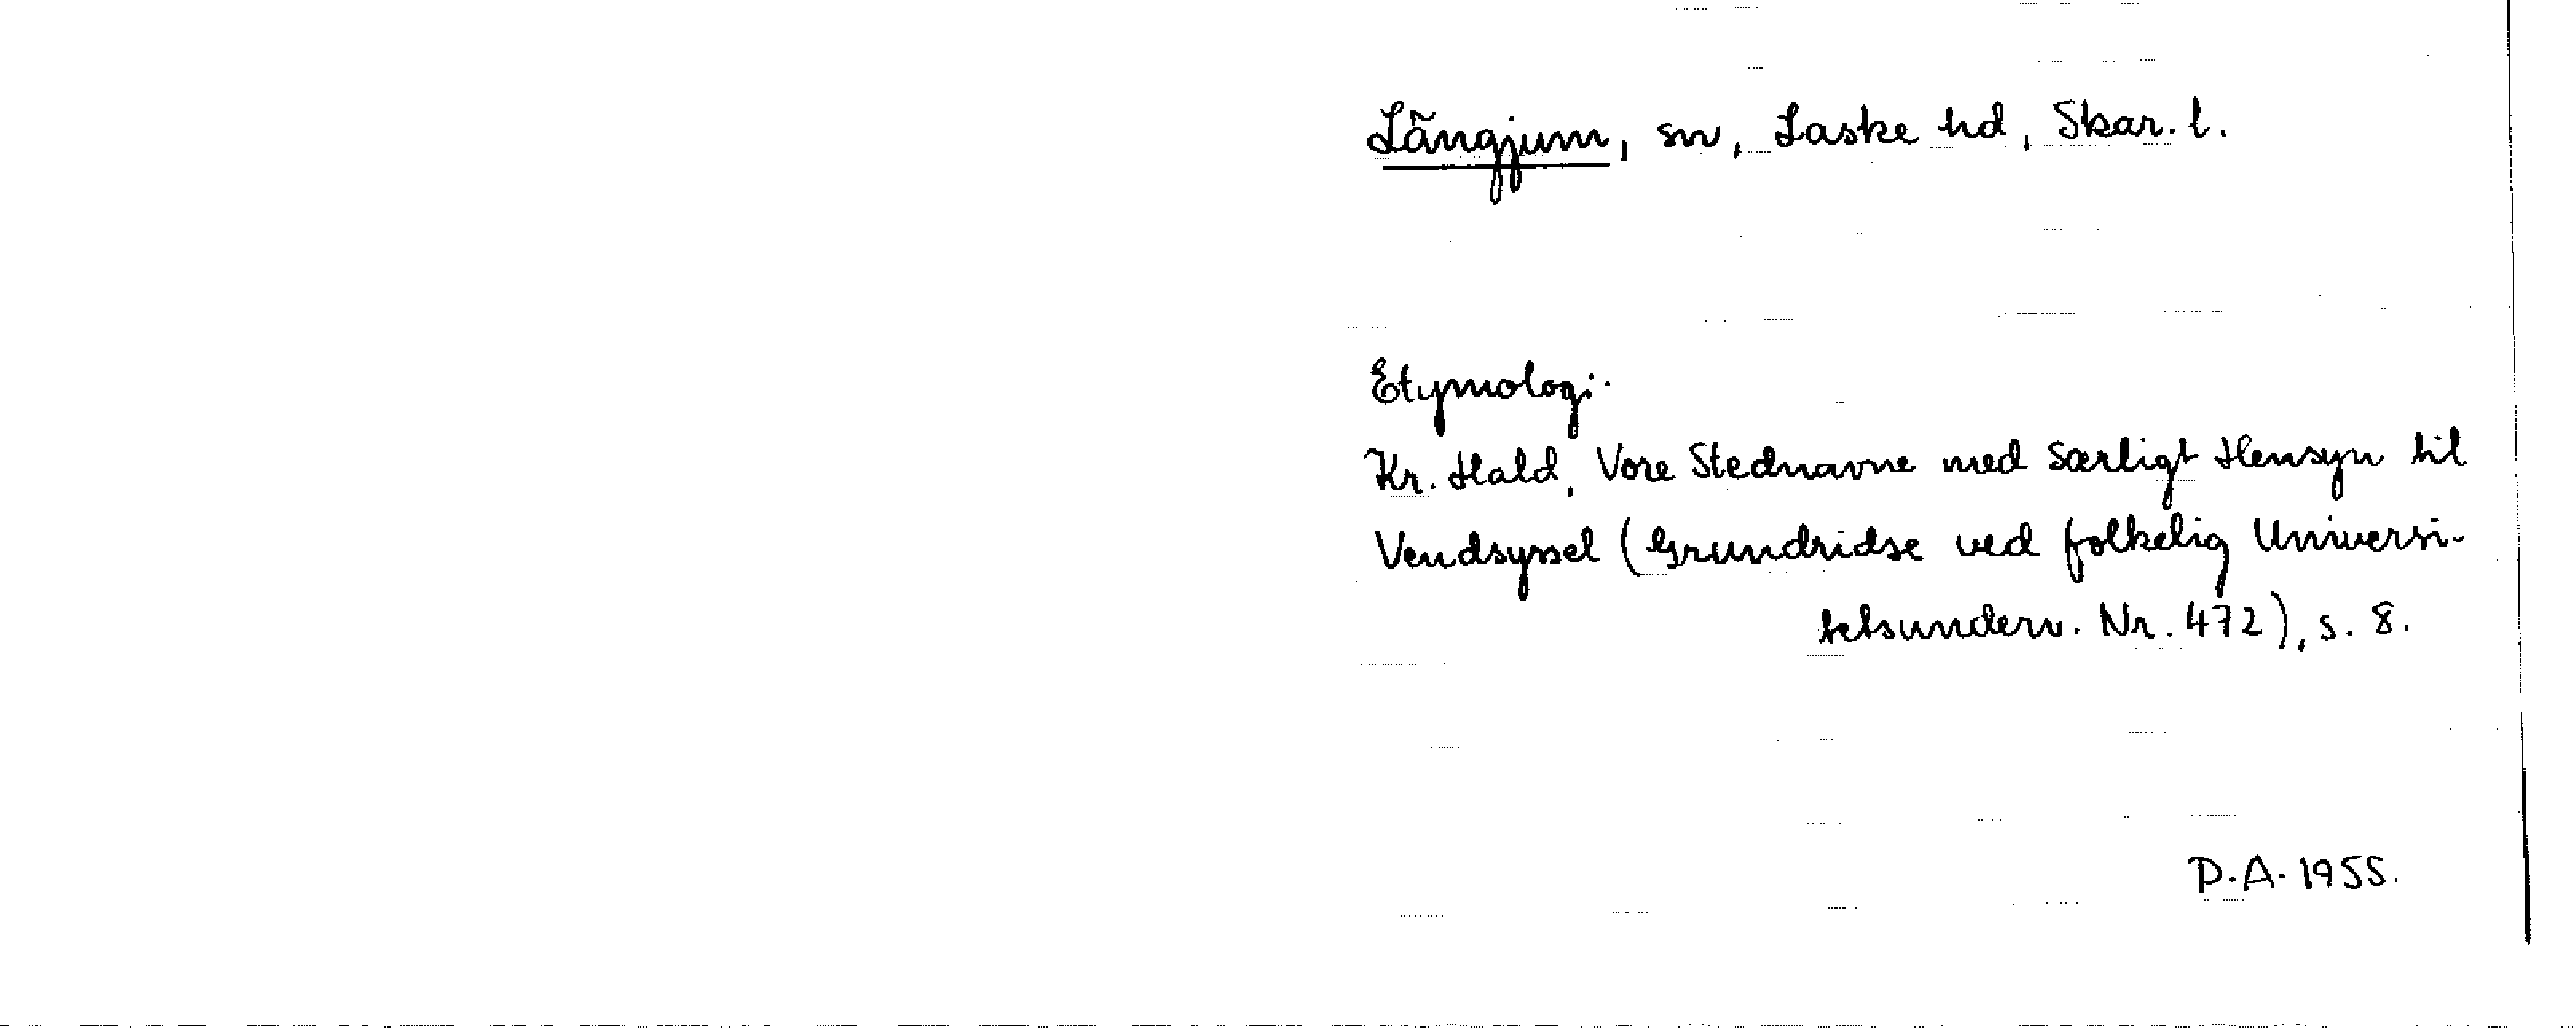 Långjum, sn, Laske hd, Skar. l.
Etymologi.
Kr. Hald, Vore Stednavne med særligt Hensyn til
Vendsyssel (Grundridse ved folkelig Universi-
tetsunderv. Nr. 472), s. 8.
D.A. 1955.